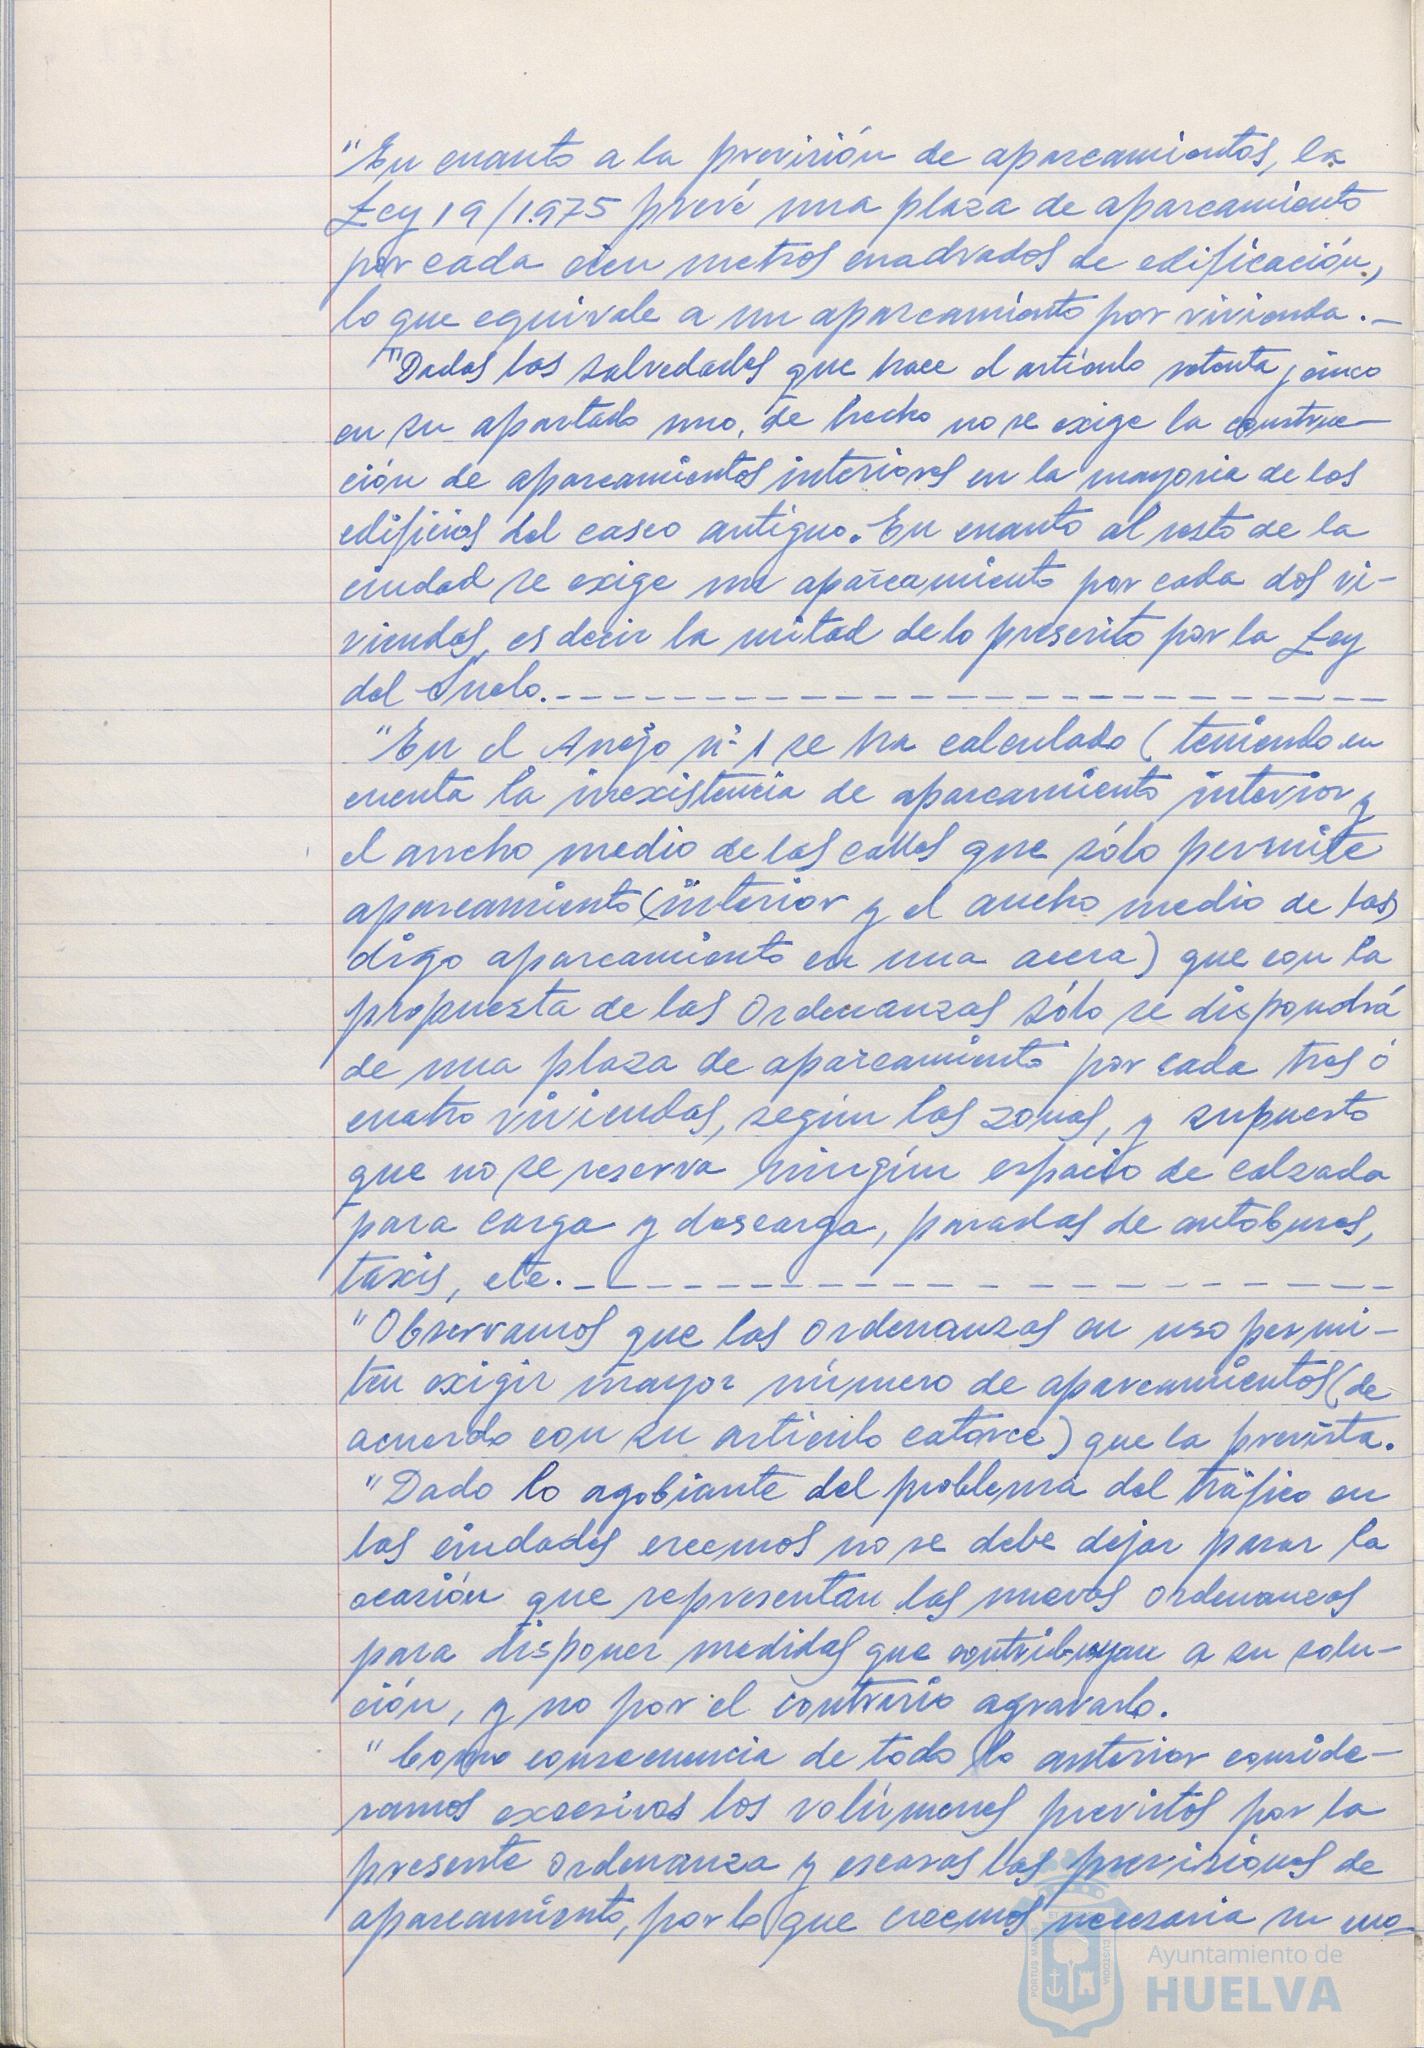 "En cuanto a la previsión de aparcamientos, la
Ley 19/1.975 prevé una plaza de aparcamiento
por cada cien metros cuadrados de edificación,
lo que equivale a un aparcamiento por vivienda._
"Dadas las salvedades que hace el artículo setenta y cinco
en su apartado uno, de hecho no se exige la construc-
ción de aparcamientos interiores en la mayoria de los
edificios del casco antiguo. En cuanto al resto de la
ciudad se exige un aparcamiento por cada dos vi-
viendas, es decir la mitad de lo prescrito por la Ley
del Suelo._ _ _ _ _ _ _ _ _ _ _ _ _ _ _ _
"En el Anejo nº 1 se ha calculado (teniendo en
cuenta la inexistencia de aparcamiento interior y
el ancho medio de las calles que sólo permite
aparcamiento (interior y el ancho medio de las)
digo aparcamiento en una acera) que con la
propuesta de las Ordenanzas sólo se dispondrá
de una plaza de aparcamiento por cada tres ó
cuatro viviendas, según las zonas, y supuesto
que no se reserva ningún espacio de calzada
para carga y descarga, paradas de autobuses,
taxis, etc._ _ _ _ _ _ _ _ _ _ _ _ _ _ _ _
"Observamos que las Ordenanzas en uso permi-
ten exigir mayor número de aparcamientos (de
acuerdo con su artículo catorce) que la prevista.
"Dado lo agobiante del problema del tráfico en
las ciudades creemos no se debe dejar pasar la
ocasión que representan las nuevas Ordenanzas
para disponer medidas que contribuyan a su solu-
ción, y no por el contrario agravarlo.
"Como consecuencia de todo lo anterior conside-
ramos excesivos los volúmenes previstos por la
presente Ordenanza y escasas las previsiones de
aparcamiento, por lo que creemos necesaria su mo-
Ayuntamiento de
HUELVA